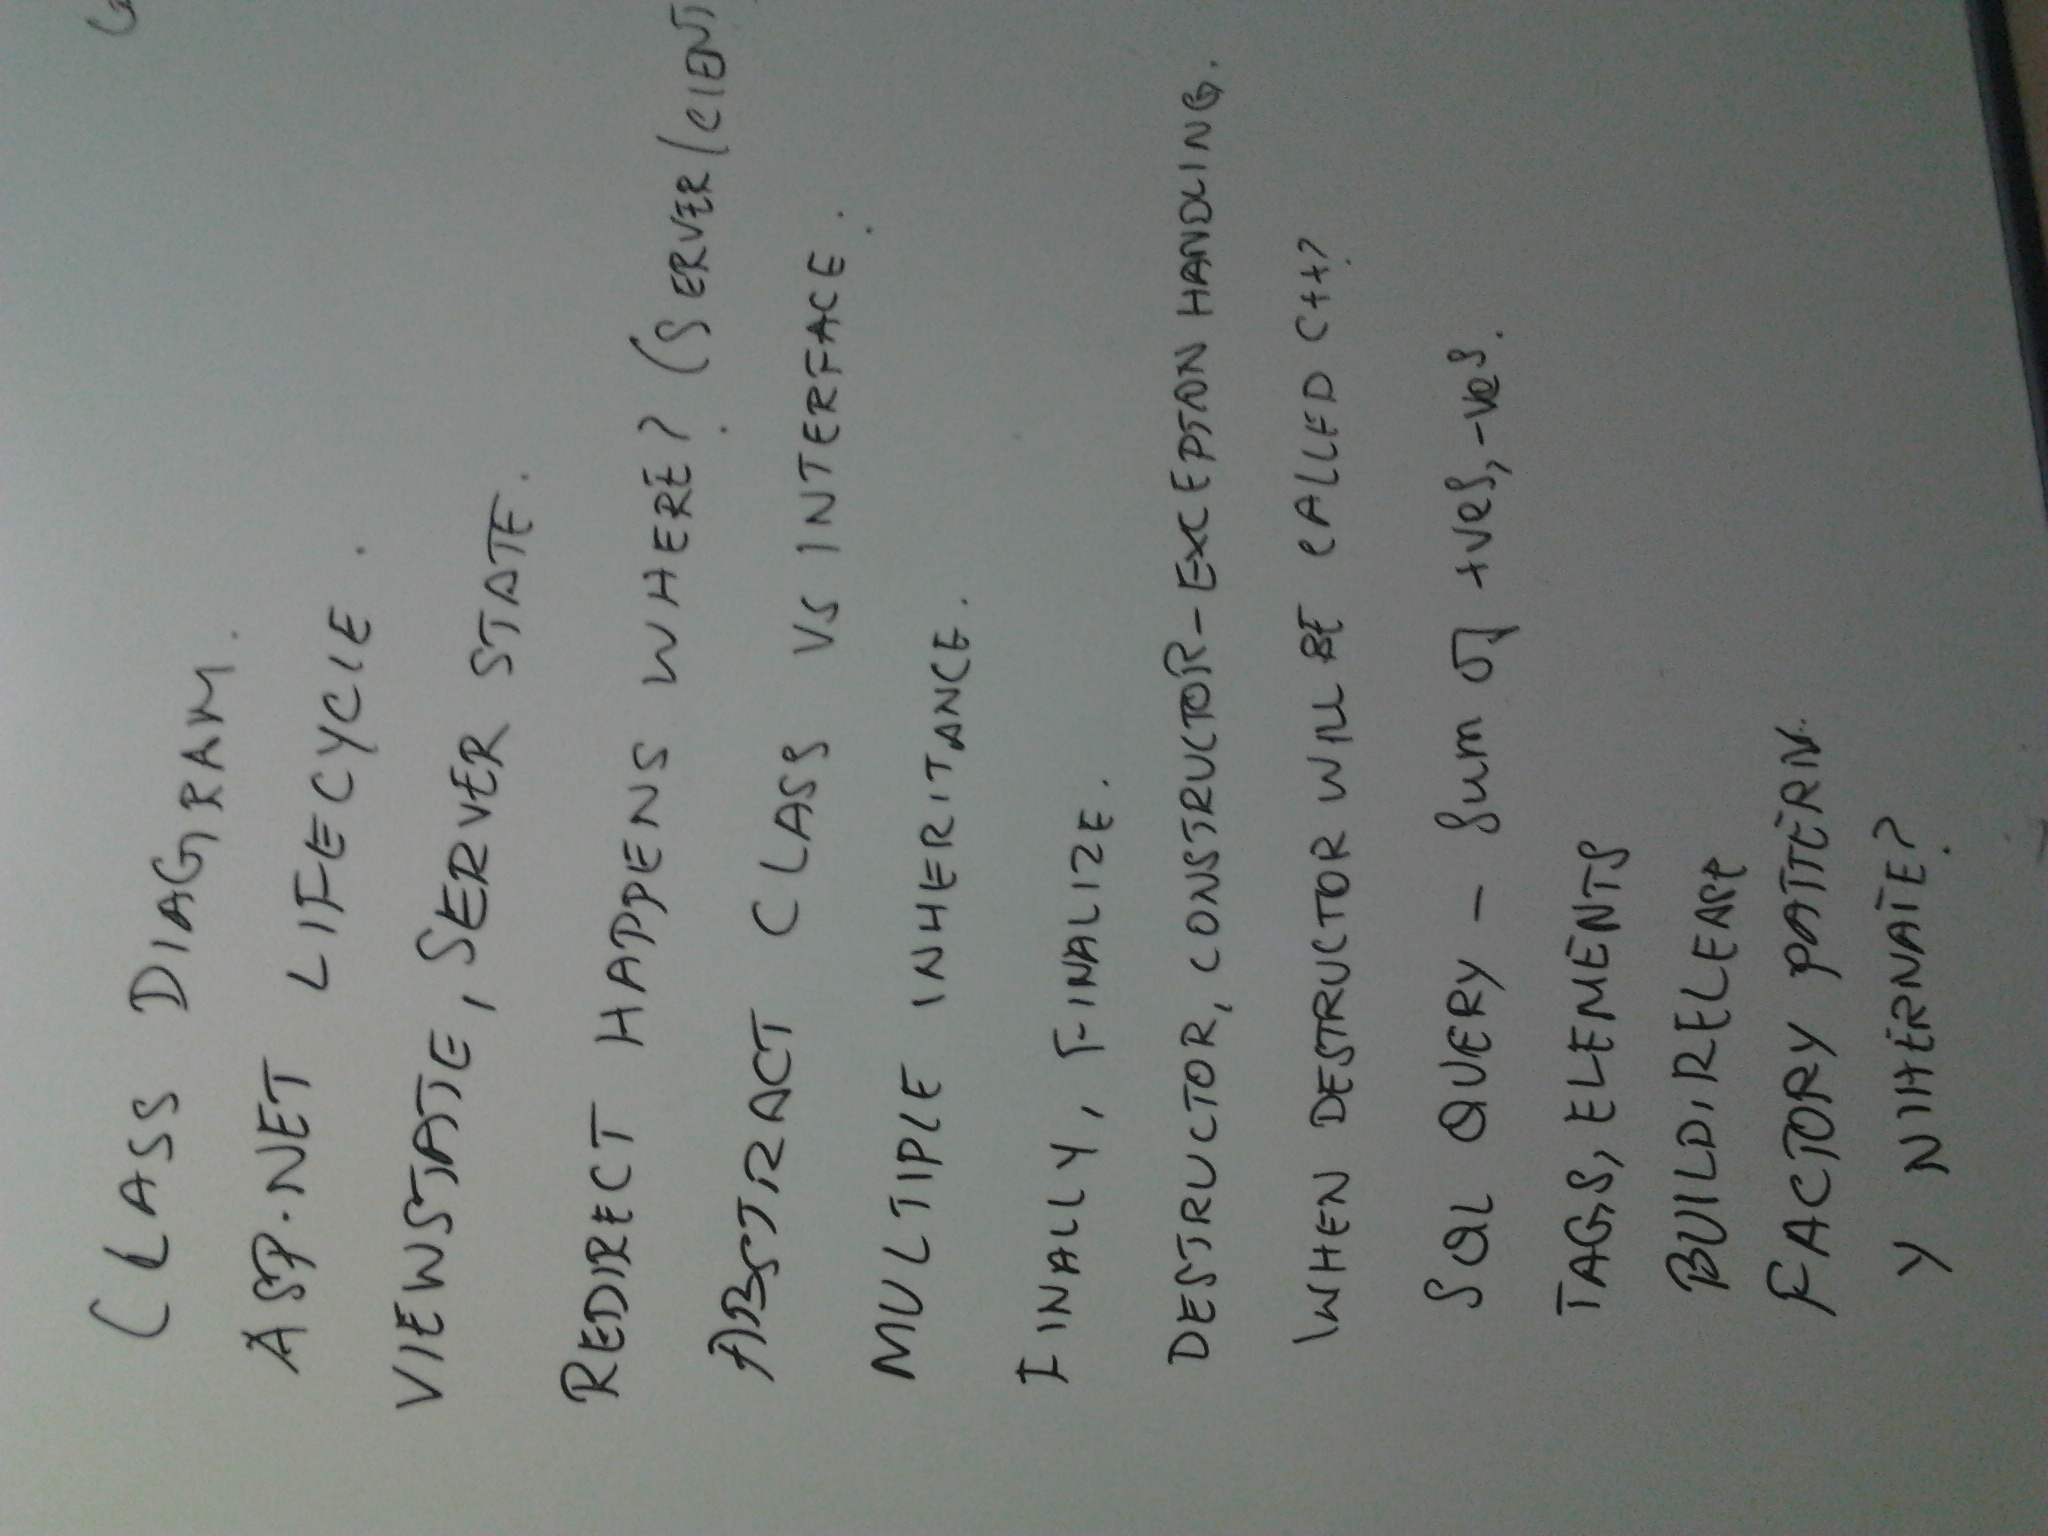 CLASS DIAGRAM.
ASP.NET LIFECYCLE.
VIEWSTATE, SERVER STATE.
REDIRECT HAPPENS WHERE? (SERVER/CLIENT
ABSTRACT CLASS VS INTERFACE.
MULTIPLE INHERITANCE.
FINALLY, FINALIZE.
DESTRUCTOR, CONSTRUCTOR-EXCEPTON HANDLING.
WHEN DESTRUCTOR WILL BE CALLED C++?
SQL QUERY - Sum of +ves, -ves.
TAGS, ELEMENTS
BUILD, RELEASE
FACTORY PATTERN.
Y NIHERNATE?